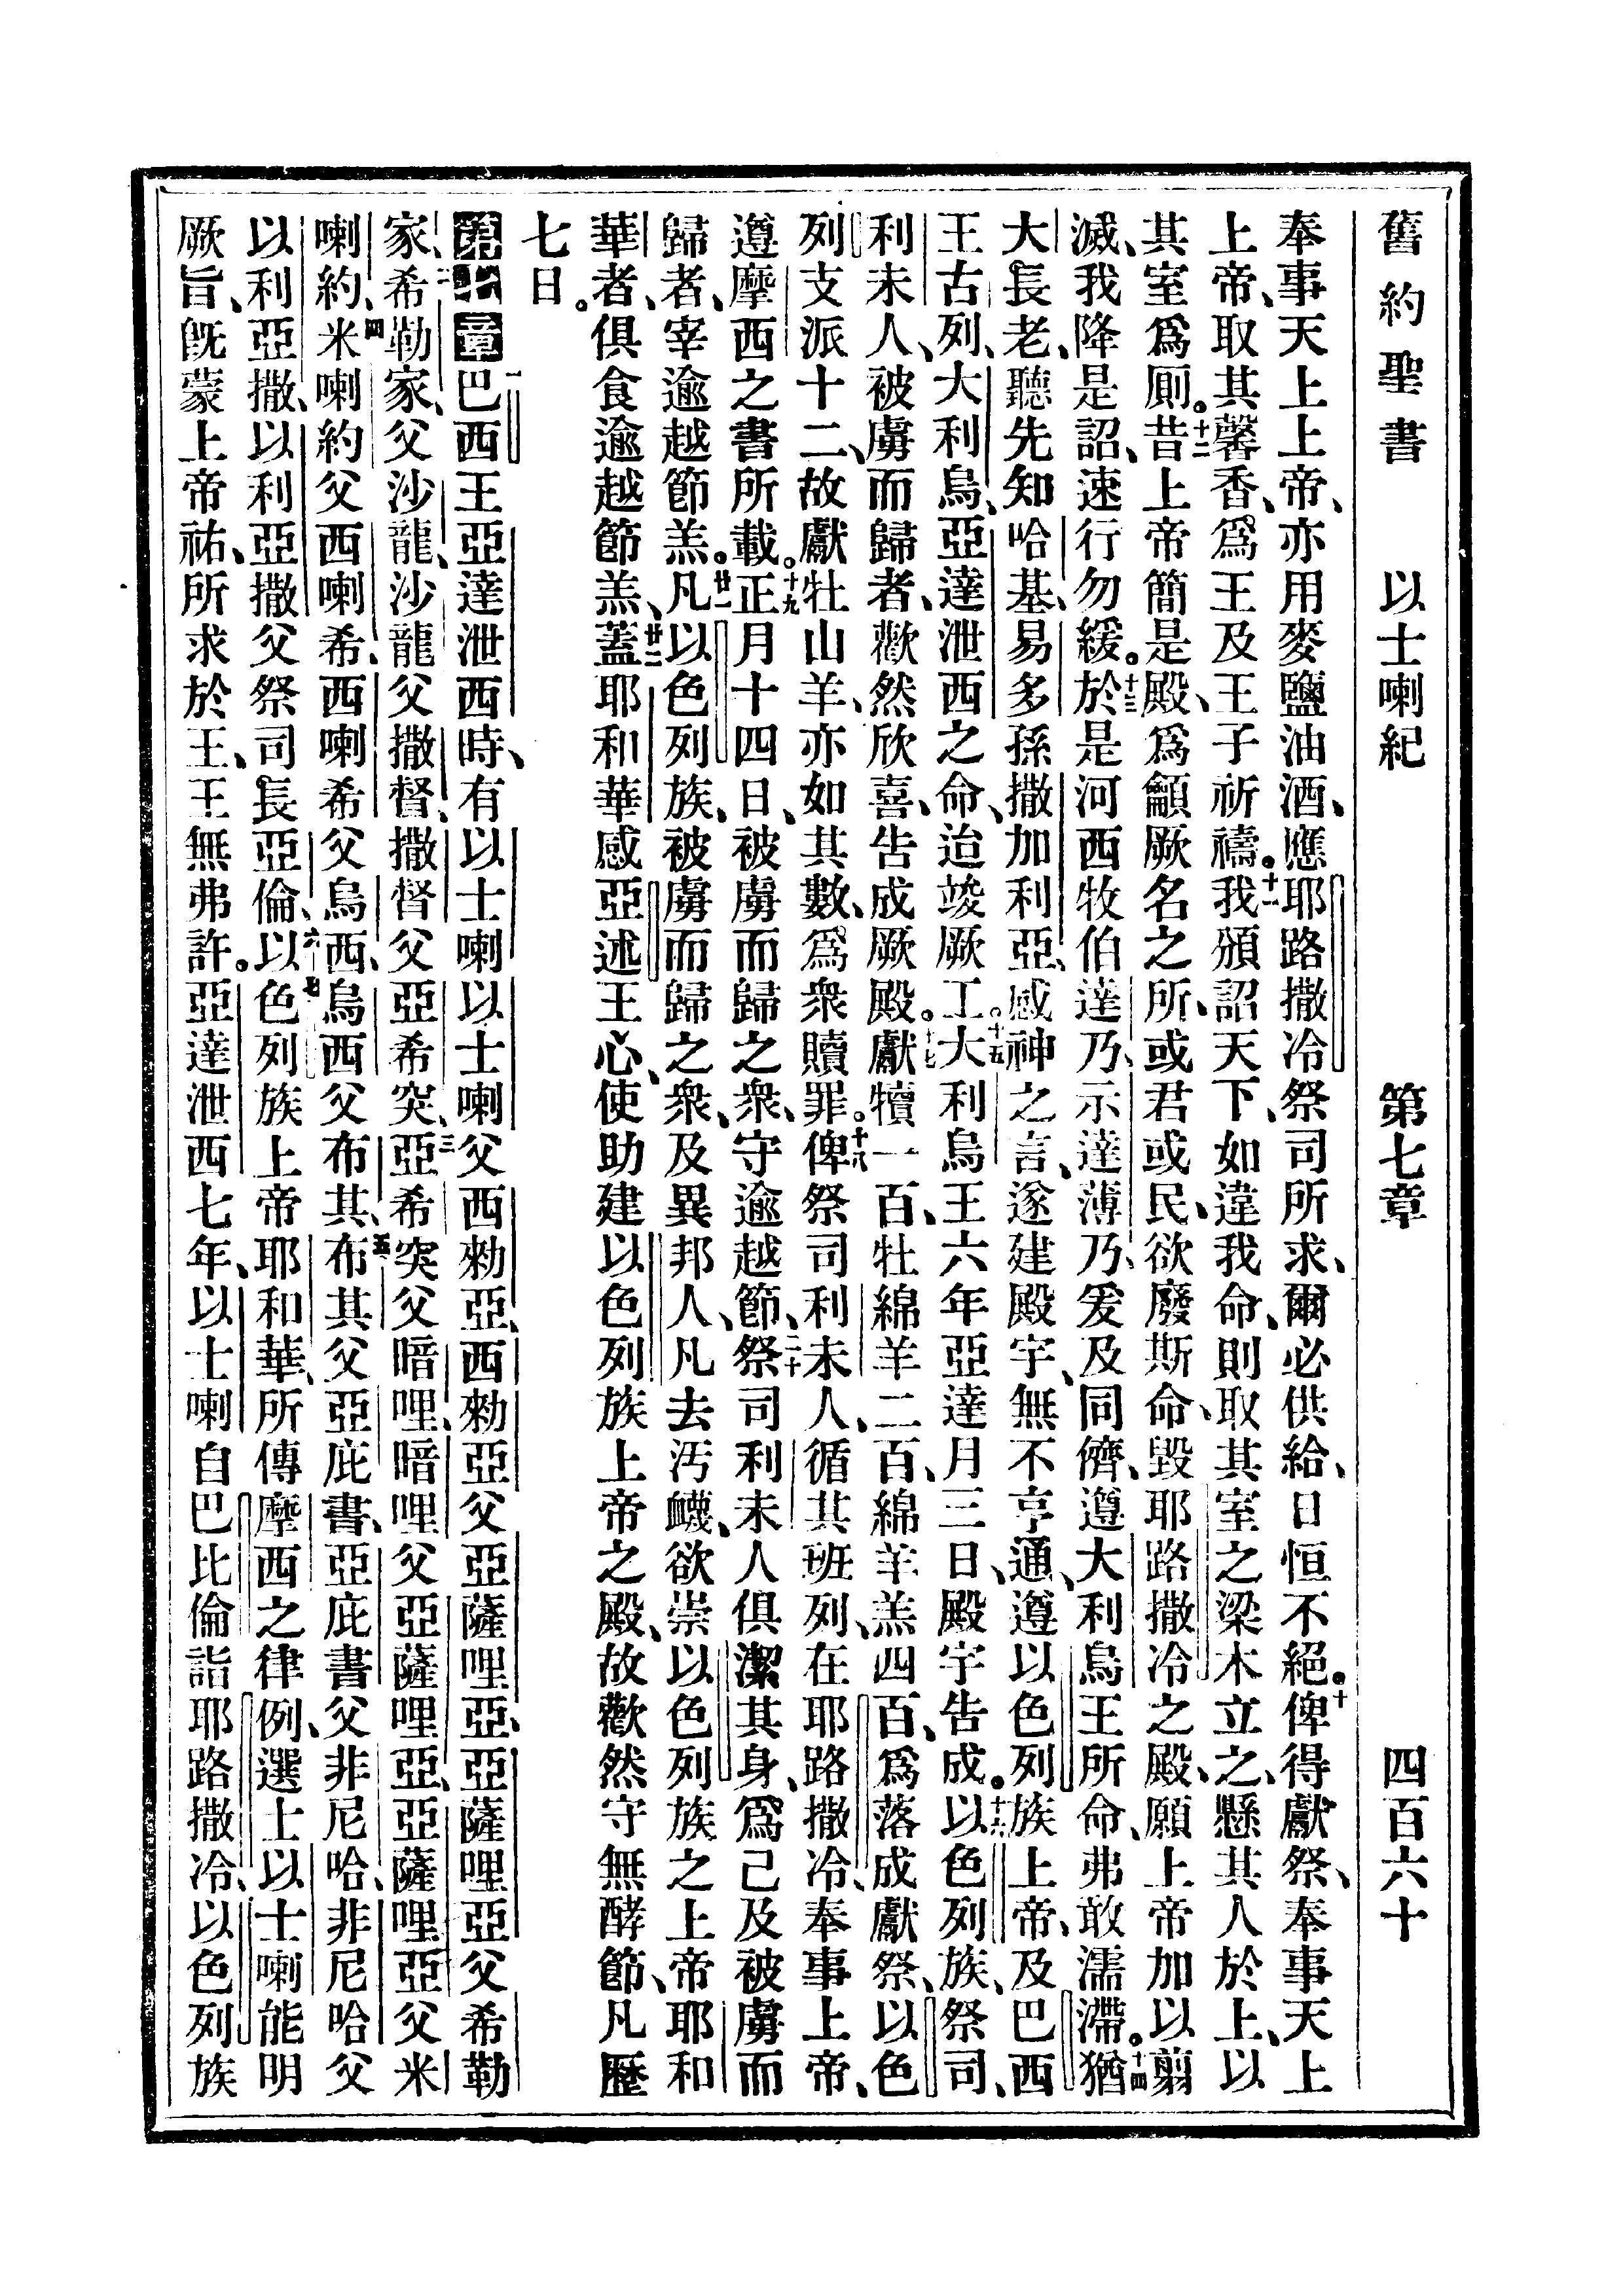 舊約聖書 以士喇紀 第七章 四百六十
奉事天上上帝、亦用麥鹽油酒、應耶路撒冷祭司所求、爾必供給、日恒不絕。十俾得獻祭、奉事天上
上帝、取其馨香、爲王及王子祈禱。十一我頒詔天下、如違我命、則取其室之梁木立之、懸其人於上、以
其室爲厠。十二昔上帝簡是殿、爲籲厥名之所、或君或民、欲廢斯命、毀耶路撒冷之殿、願上帝加以翦
滅、我降是詔、速行勿緩。十三於是河西牧伯達乃、示達薄乃、爰及同儕、遵大利烏王所命、弗敢濡滯。十四猶
大長老、聽先知哈基、易多孫撒加利亞、感神之言、遂建殿宇、無不亨通、遵以色列族上帝、及巴西
王古列、大利烏、亞達泄西之命、迨竣厥工。十五大利烏王六年亞達月三日、殿宇告成。十六以色列族、祭司、
利未人、被虜而歸者、歡然欣喜、告成厥殿。十七獻犢一百、牡綿羊二百、綿羊羔四百、爲落成獻祭、以色
列支派十二、故獻牡山羊、亦如其數、爲衆贖罪。十八俾祭司利未人、循其班列、在耶路撒冷、奉事上帝、
遵摩西之書所載。十九正月十四日、被虜而歸之衆、守逾越節、二十祭司利未人俱潔其身、爲己及被虜而
歸者、宰逾越節羔。廿一凡以色列族、被虜而歸之衆、及異邦人、凡去汚衊、欲崇以色列族之上帝耶和
華者、俱食逾越節羔、廿二蓋耶和華感亞述王心、使助建以色列族上帝之殿、故歡然守無酵節、凡歷
七日。
第七章一巴西王亞達泄西時、有以士喇以士喇父西勑亞、西勑亞父亞薩哩亞、亞薩哩亞父希勒
家、二希勒家父沙龍、沙龍父撒督、撒督父亞希突、三亞希突父暗哩、暗哩父亞薩哩亞、亞薩哩亞父米
喇約、四米喇約父西喇希、西喇希父烏西、烏西父布其、五布其父亞庇書、亞庇書父非尼哈、非尼哈父
以利亞撒、以利亞撒父祭司長亞倫、六以色列族上帝耶和華、所傳摩西之律例、選士以士喇能明
厥旨、旣蒙上帝祐、所求於王、王無弗許。亞達泄西七年、以士喇自巴比倫詣耶路撒冷、以色列族